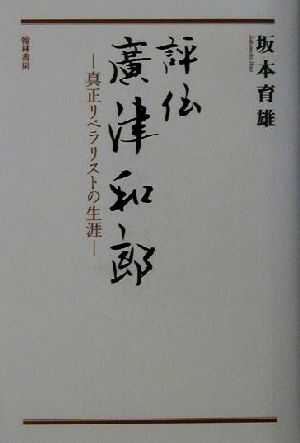 坂本育雄
Sakamoto Ikuo
評伝
廣津和郎
―真正リベラリストの生涯―
翰林書房